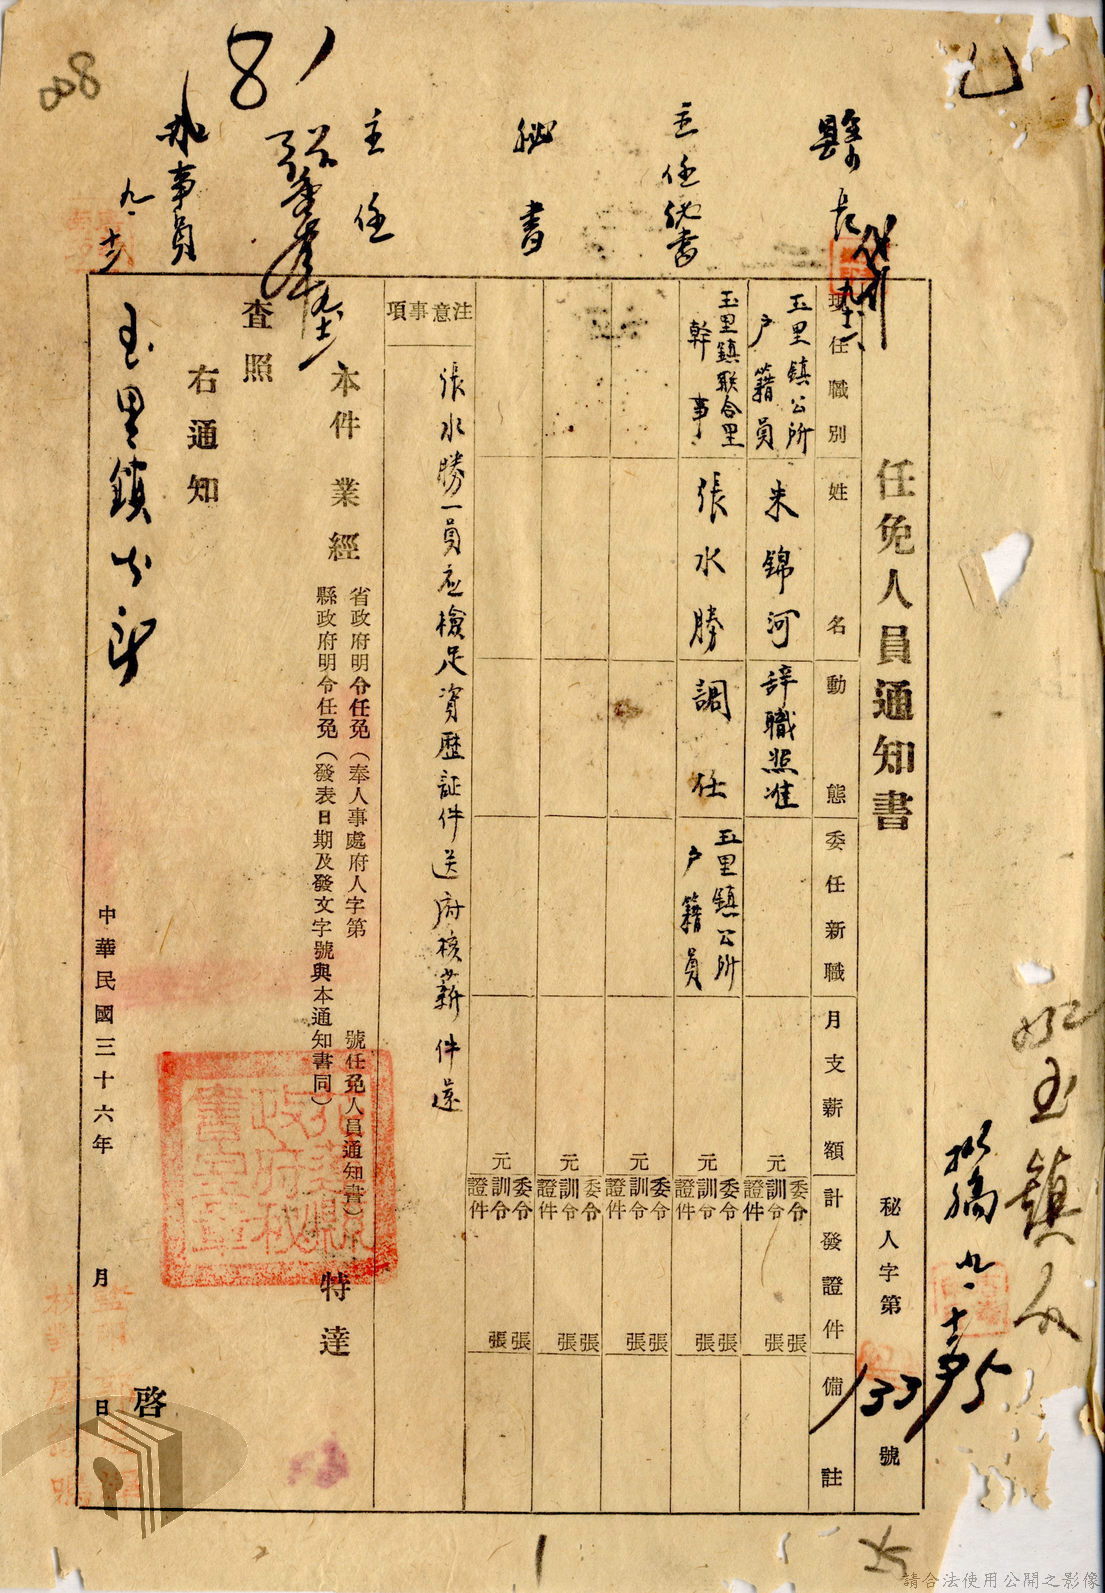 任免人員通知書
秘人字第 號
133
現任職別
姓名
動態
委任新職
月支薪額
計發證件
備註
玉里鎮公所
戶籍員
朱錦河
辞職照准
元
委令 張
訓令 張
證件
玉里鎮联合里
幹事
張水勝
調任
玉里鎮公所
戶籍員
元
委令 張
訓令 張
證件
元
委令 張
訓令 張
證件
元
委令 張
訓令 張
證件
元
委令 張
訓令 張
證件
注意事項
張水勝一員应檢足資歷証件送府核薪件還
本件業經
省政府明令任免(奉人事處府人字第 號任免人員通知書)
縣政府明令任免(發表日期及發文字號與本通知書同)
特達
查照
右通知
玉里鎮公所
啓
中華民國三十六年 月 日
縣長
主任秘書
秘書
主任
办事員
九、十六
81
008
擬稿
請合法使用公開之影像